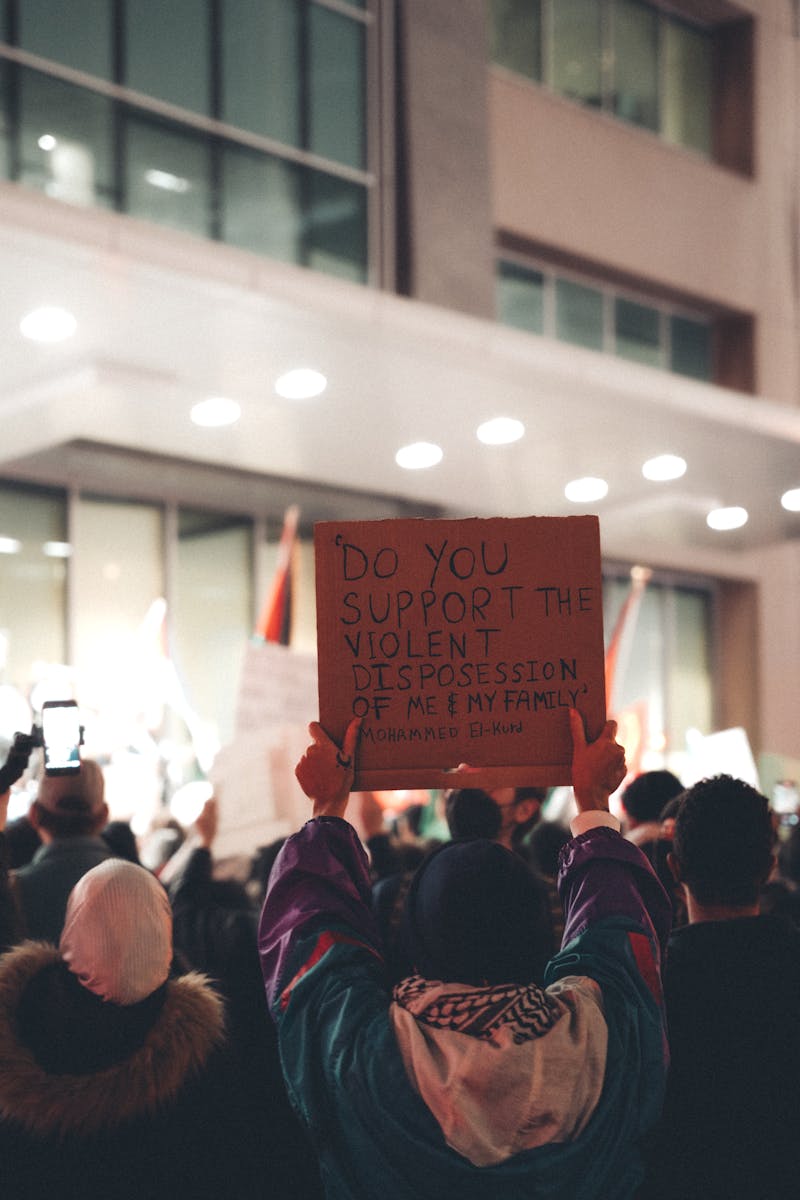 'DO YOU
SUPPORT THE
VIOLENT
DISPOSESSION
OF ME & MY FAMILY'
MOHAMMED El-Kurd